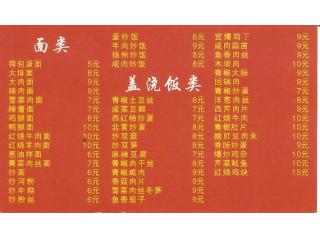 面类
荷包蛋面 5元
大排面 8元
大肉面 9元
辣肉面 9元
雪菜肉面 7元
辣酱面 7元
鸡腿面 8元
鸭腿面 10元
红烧牛肉面 10元
红烧羊肉面 10元
葱油拌面 6元
青菜肉丝面 7元
炒面 6元
炒河粉 6元
炒年糕 6元
炒粉丝 6元
蛋炒饭 6元
牛肉炒饭 9元
扬州炒饭 8元
咸肉炒饭 8元
盖浇饭类
青椒土豆丝 6元
咸菜豆瓣 7元
西红柿炒蛋 7元
韭黄炒蛋 8元
炒双菇 8元
炒双笋 8元
麻辣豆腐 7元
青椒肉干丝 8元
青椒咸肉 9元
香菇肉片 9元
雪菜肉丝冬笋 9元
鱼香茄子 9元
宫爆鸡丁 9元
咸肉蒜苗 9元
鱼香肉丝 9元
木须肉 10元
青椒大肠 9元
回锅肉 9元
青椒炒蛋 7元
洋葱肉丝 8元
红烧牛肉 10元
青椒肚片 10元
酸豇豆肉末 10元
香肠炒蛋 9元
爆炒鸡杂 10元
芹菜鱿鱼 10元
红烧鸡块 15元